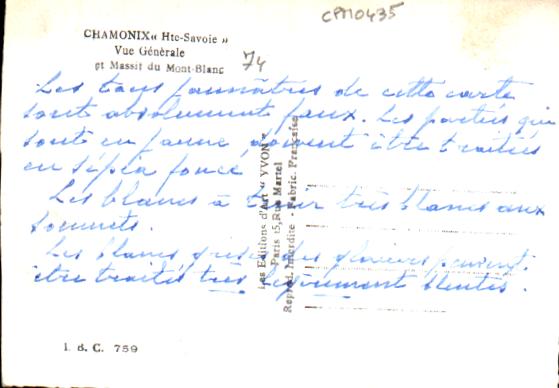 CPM0435
CHAMONIX « Hte-Savoie »
Vue Générale
et Massif du Mont-Blanc
74
Les tons jaunâtres de cette carte
sont absolument faux. Les parties qui
sont en jaune doivent être traitées
en sépia foncé
Les blancs à tenir très blancs aux
sommets.
Les blancs gris des glaciers peuvent
être traités très légèrement bleutés.
Les Editions d'Art "YVON"
Paris 15, Rue Martel
Reprod. Interdite - Fabric. Française
I. B. C. 759